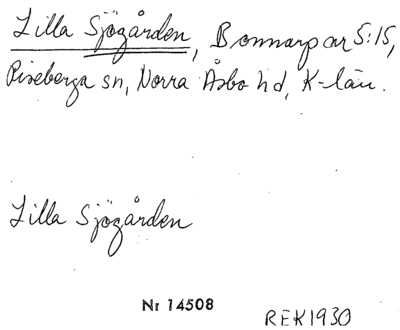 Lilla Sjögården, Bonnarp ar 5:15,
Riseberga sn, Norra Åsbo hd, K-län.
Lilla Sjögården
Nr 14508
REK1930